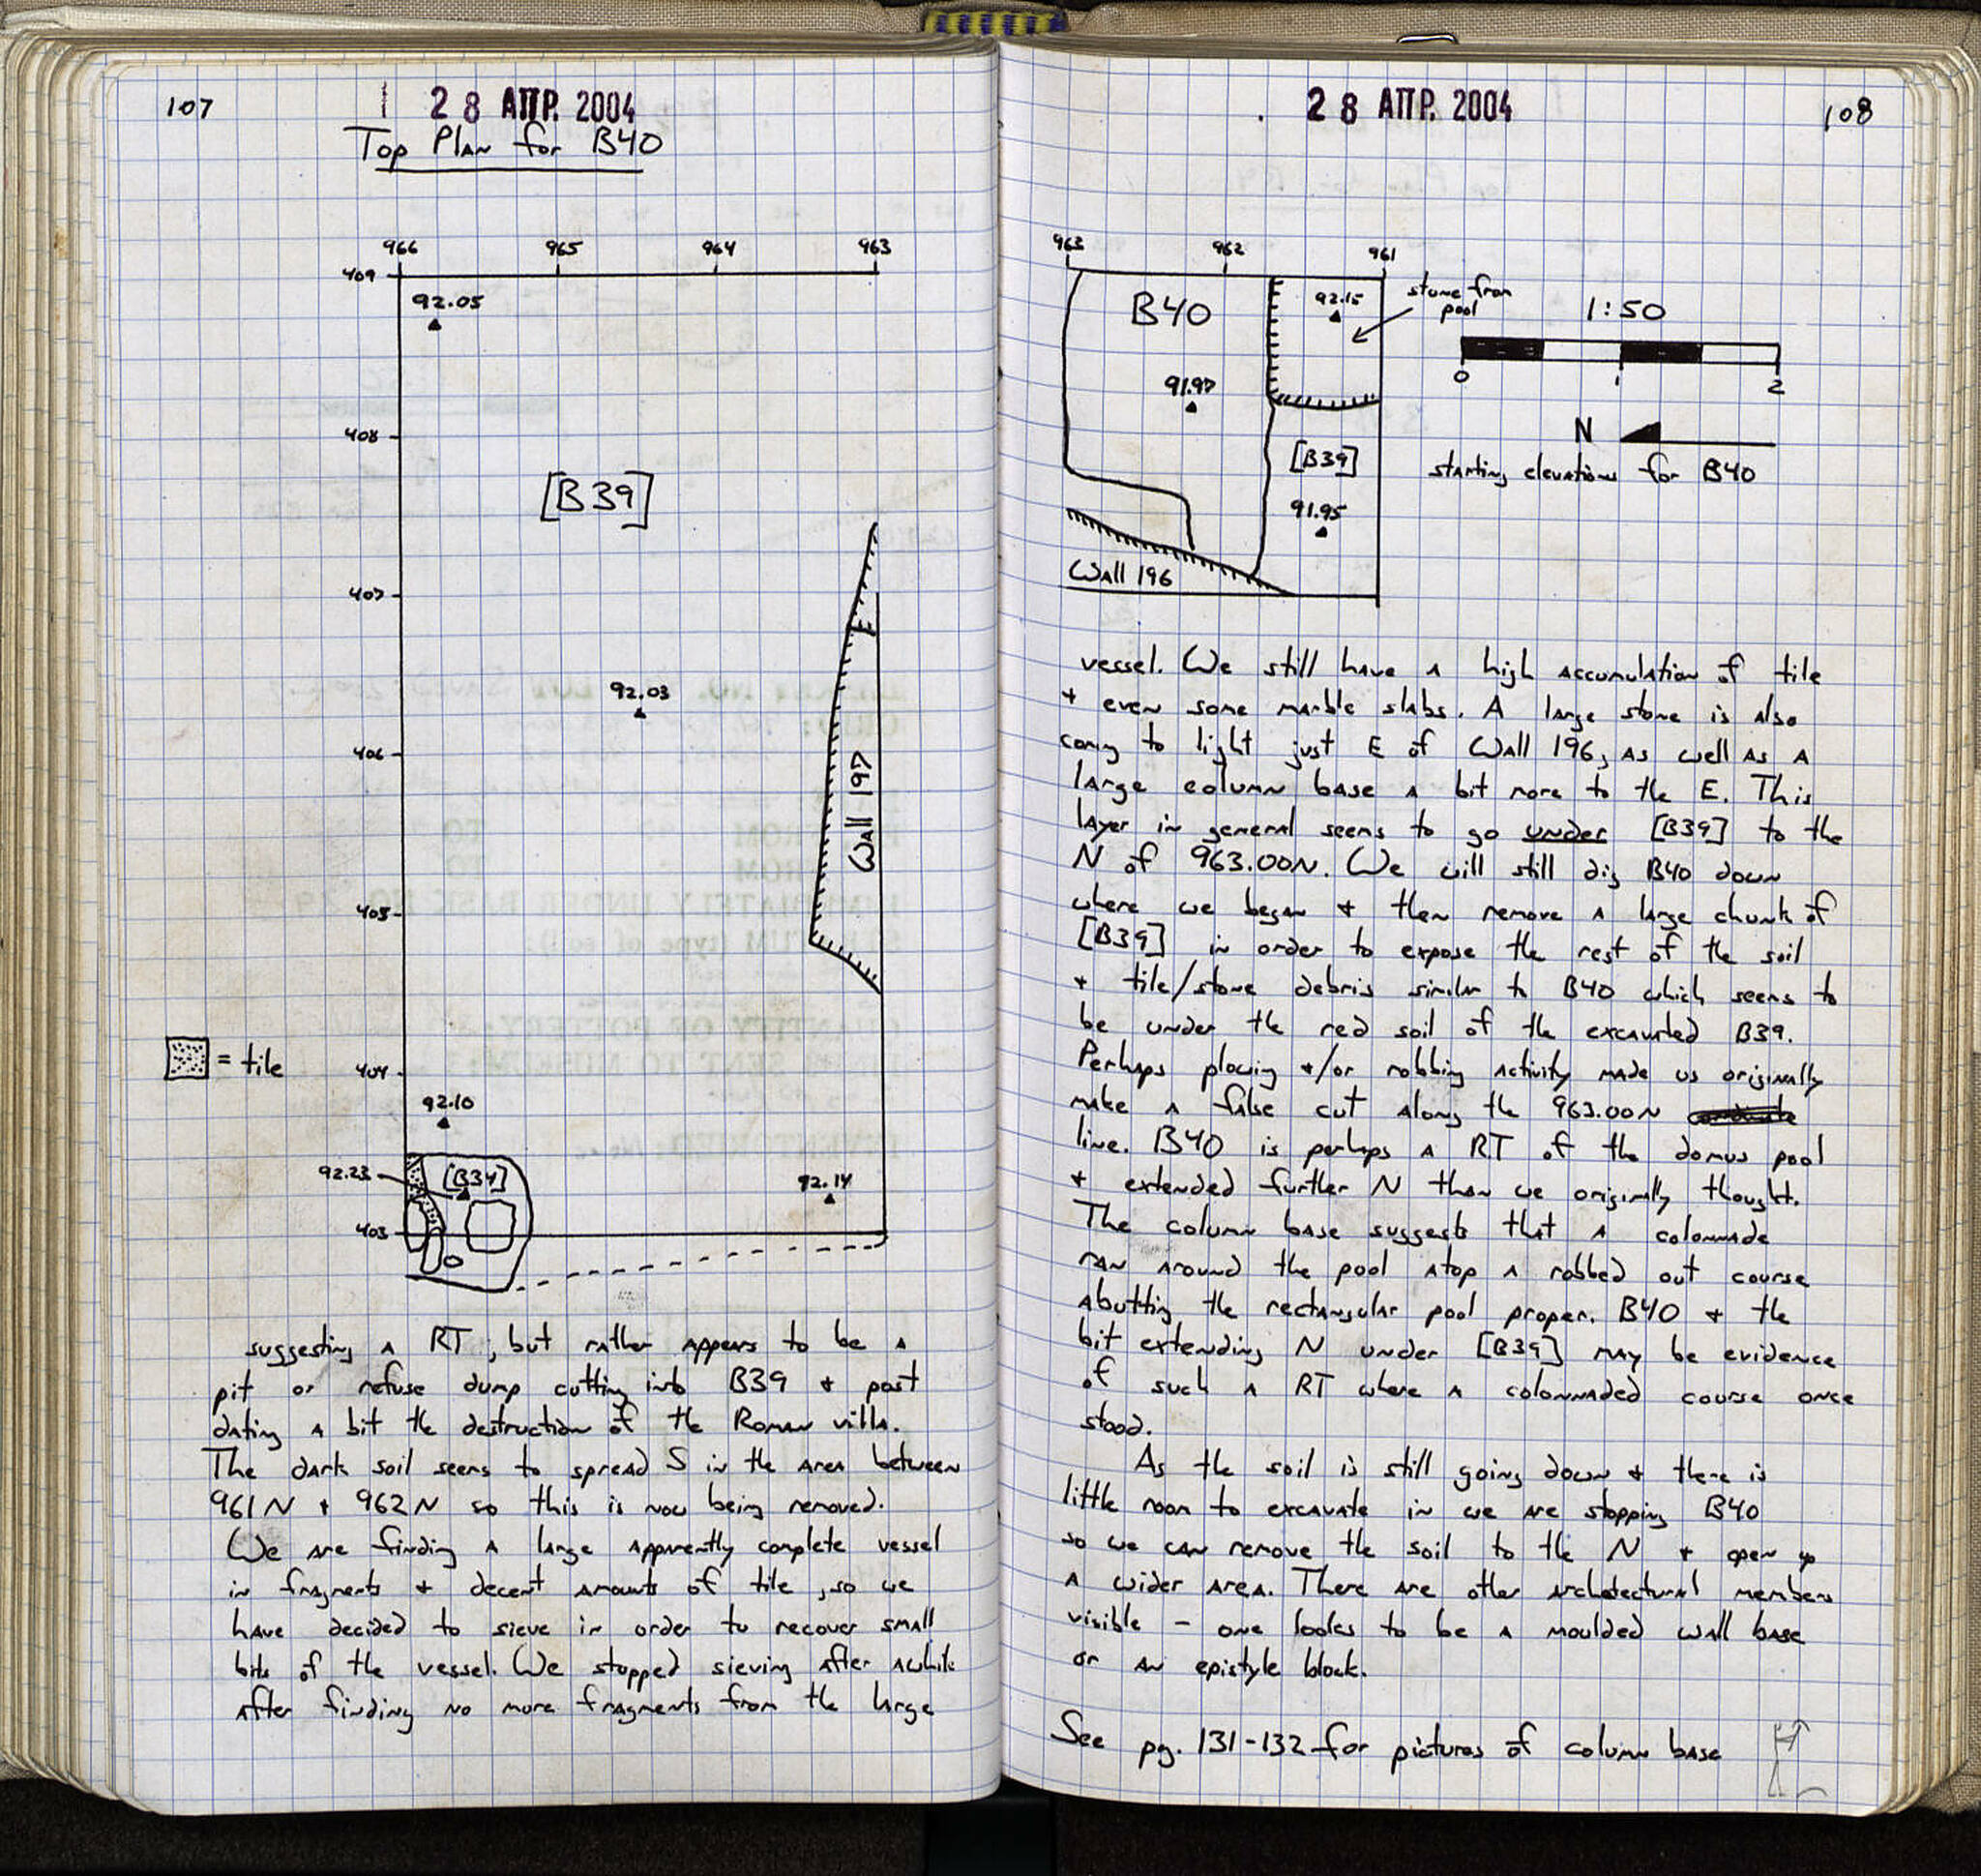 107
28 ΑΠΡ. 2004
Top Plan for B40
966 965 964 963
409
92.05
408
[B39]
407
92.03
406
Wall 197
405
= tile
404
92.10
92.23
[B34]
92.14
403
suggesting a RT, but rather appears to be a
pit or refuse dump cutting into B39 + post
dating a bit the destruction of the Roman villa.
The dark soil seems to spread S in the area between
961N + 962N so this is now being removed.
We are finding a large apparently complete vessel
in fragments + decent amounts of tile, so we
have decided to sieve in order to recover small
bits of the vessel. We stopped sieving after awhile
after finding no more fragments from the large
28 ΑΠΡ. 2004
108
963 962 961
B40
92.15
stone from
pool
1:50
0 1 2
91.97
N
[B39]
starting elevations for B40
91.95
Wall 196
vessel. We still have a high accumulation of tile
+ even some marble slabs. A large stone is also
coming to light just E of Wall 196, as well as a
large column base a bit more to the E. This
layer in general seems to go under [B39] to the
N of 963.00N. We will still dig B40 down
where we began + then remove a large chunk of
[B39] in order to expose the rest of the soil
+ tile/stone debris similar to B40 which seems to
be under the red soil of the excavated B39.
Perhaps plowing +/or robbing activity made us originally
make a false cut along the 963.00N
line. B40 is perhaps a RT of the domus pool
+ extended further N than we originally thought.
The column base suggests that a colonnade
ran around the pool atop a robbed out course
abutting the rectangular pool proper. B40 + the
bit extending N under [B39] may be evidence
of such a RT where a colonnaded course once
stood.
As the soil is still going down + there is
little room to excavate in we are stopping B40
so we can remove the soil to the N + open up
a wider area. There are other architectural members
visible - one looks to be a moulded wall base
or an epistyle block.
See pg. 131-132 for pictures of column base